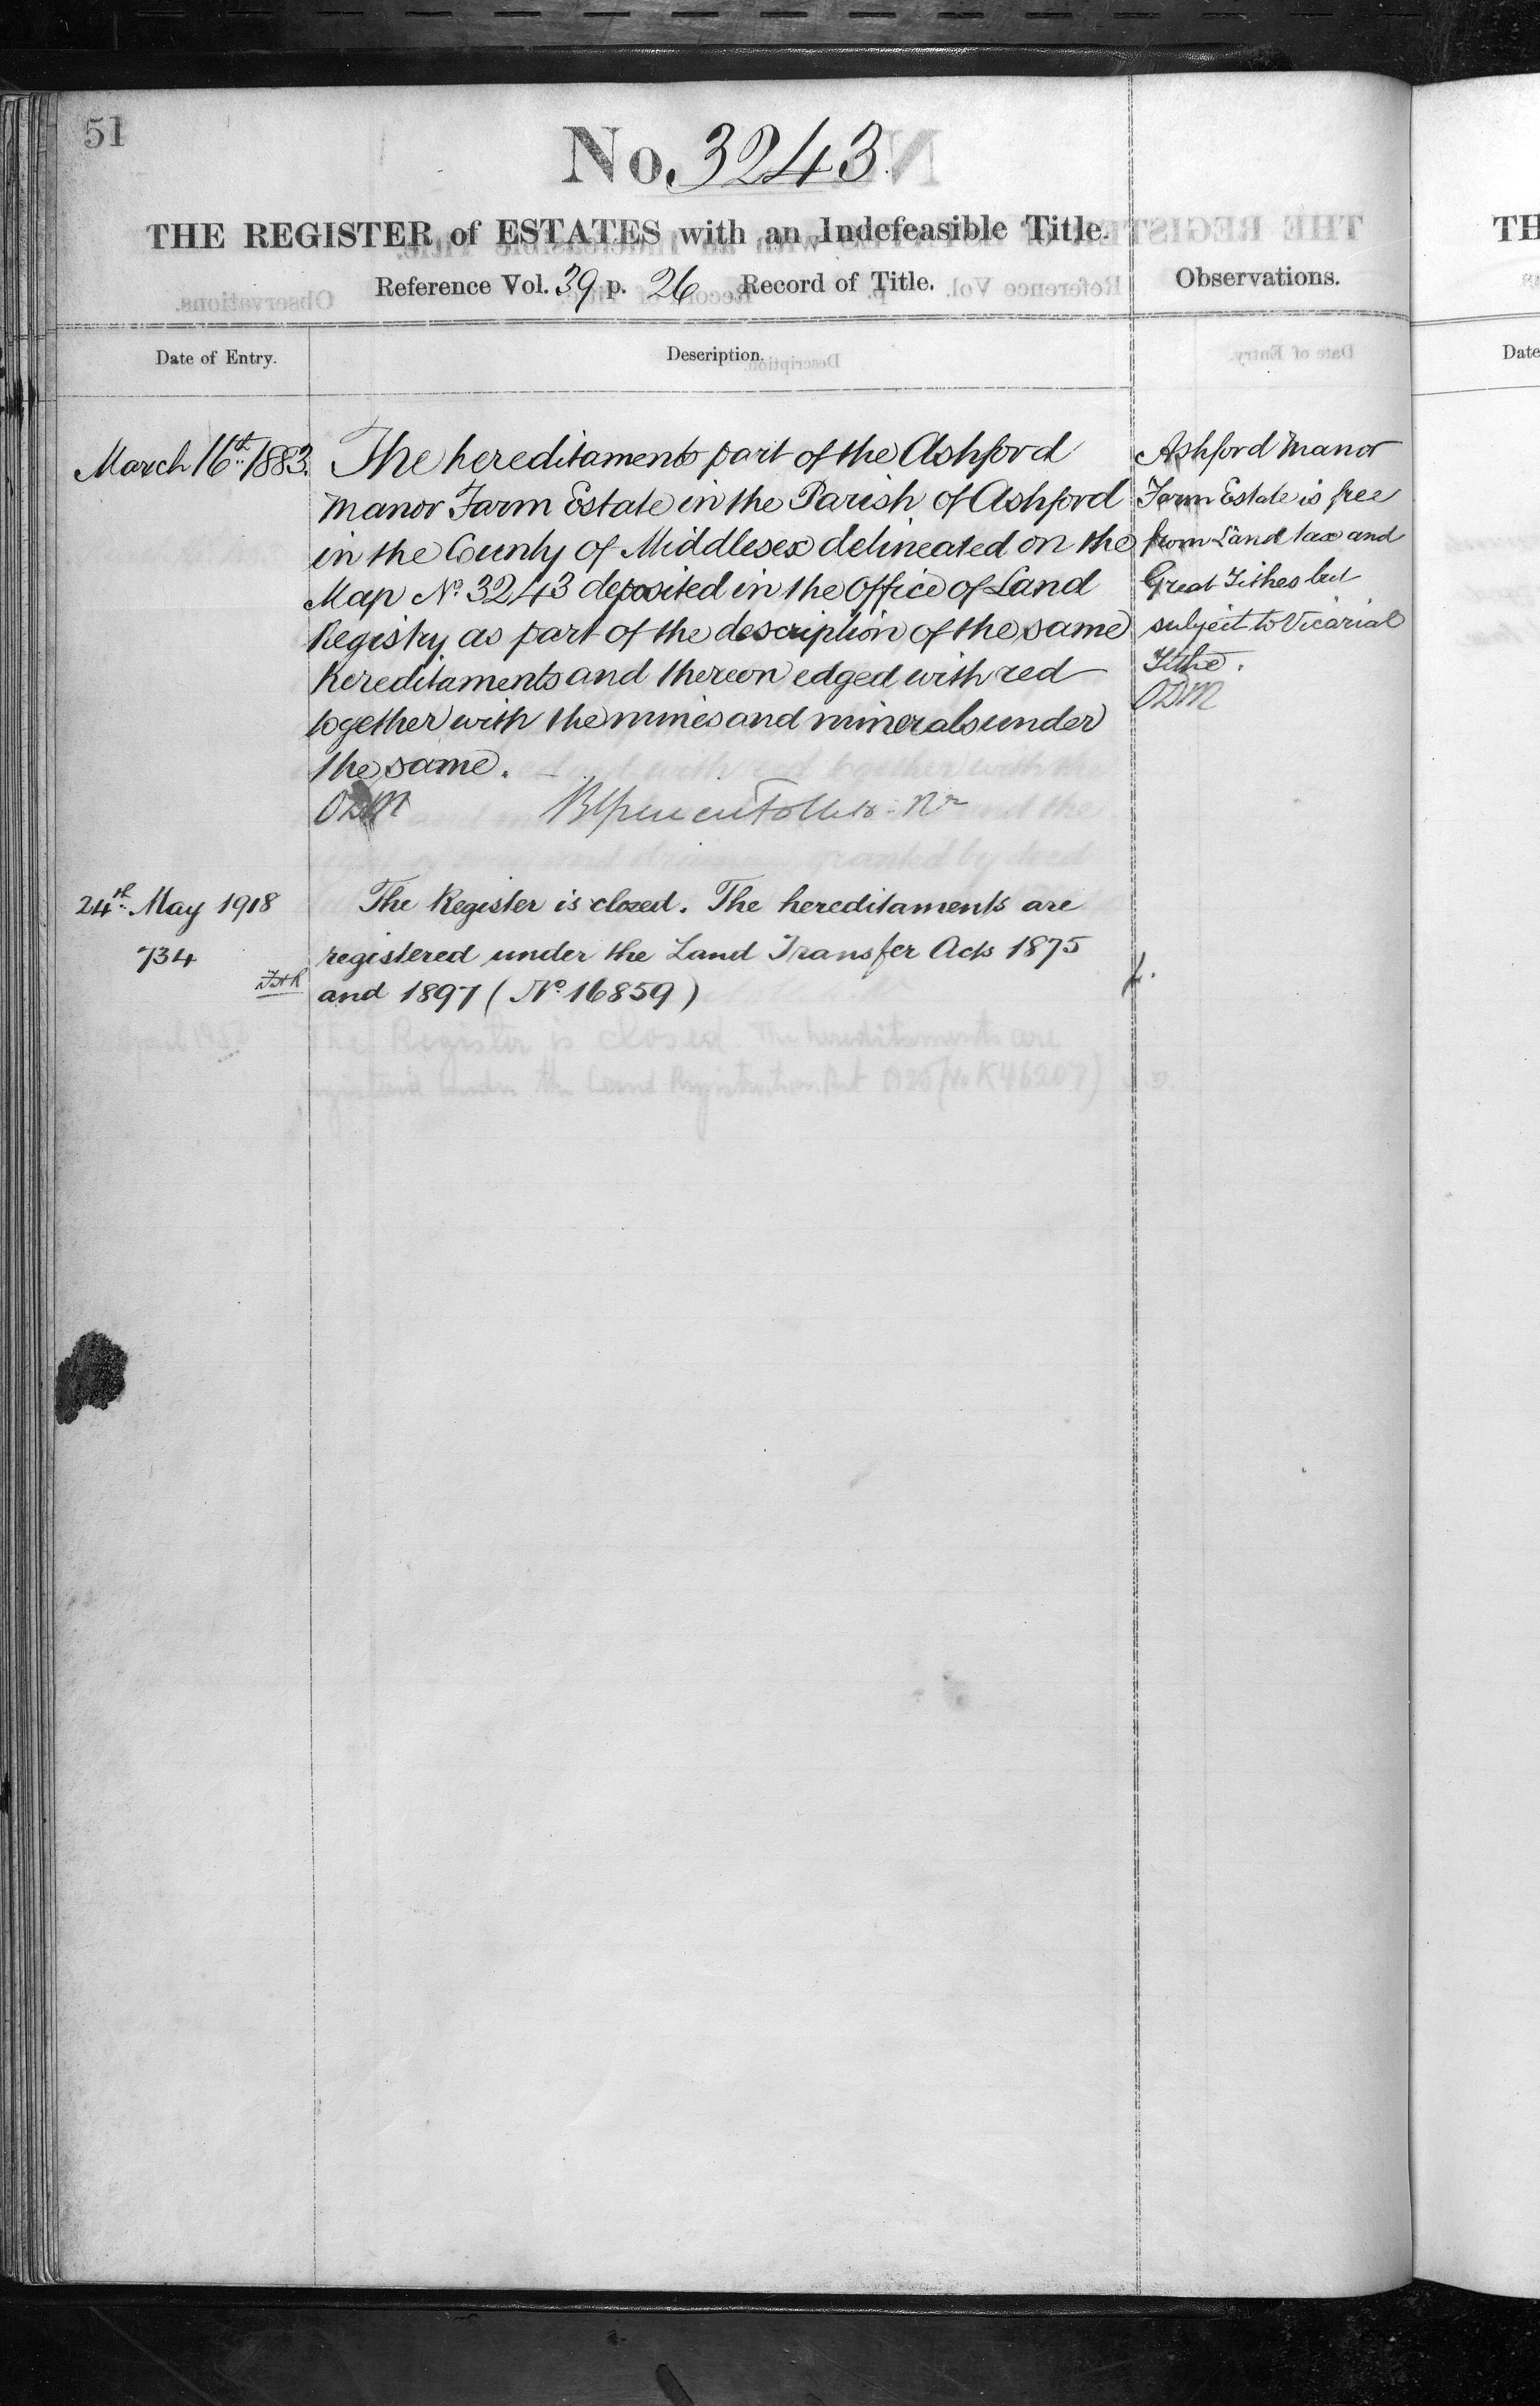 51
No. 3243
THE REGISTER of ESTATES with an Indefeasible Title.
Reference Vol. 39 p. 26 Record of Title.
Observations.
Date of Entry.
Description.
March 16th 1883.
The hereditaments part of the Ashford
Manor Farm Estate in the Parish of Ashford
in the County of Middlesex delineated on the
Map No. 3243 deposited in the Office of Land
Registry as part of the description of the same
hereditaments and thereon edged with red
together with the mines and minerals under
the same.
ODM
Ashford Manor
Farm Estate is free
from Land tax and
Great Tithes but
subject to Vicarial
Tithe.
ODM
24th May 1918
734
The Register is closed. The hereditaments are
registered under the Land Transfer Acts 1875
and 1897 (No 16859)
The Register is closed. The hereditaments are
under the Land Registration Act 1925 (No K46207)
TH
Date